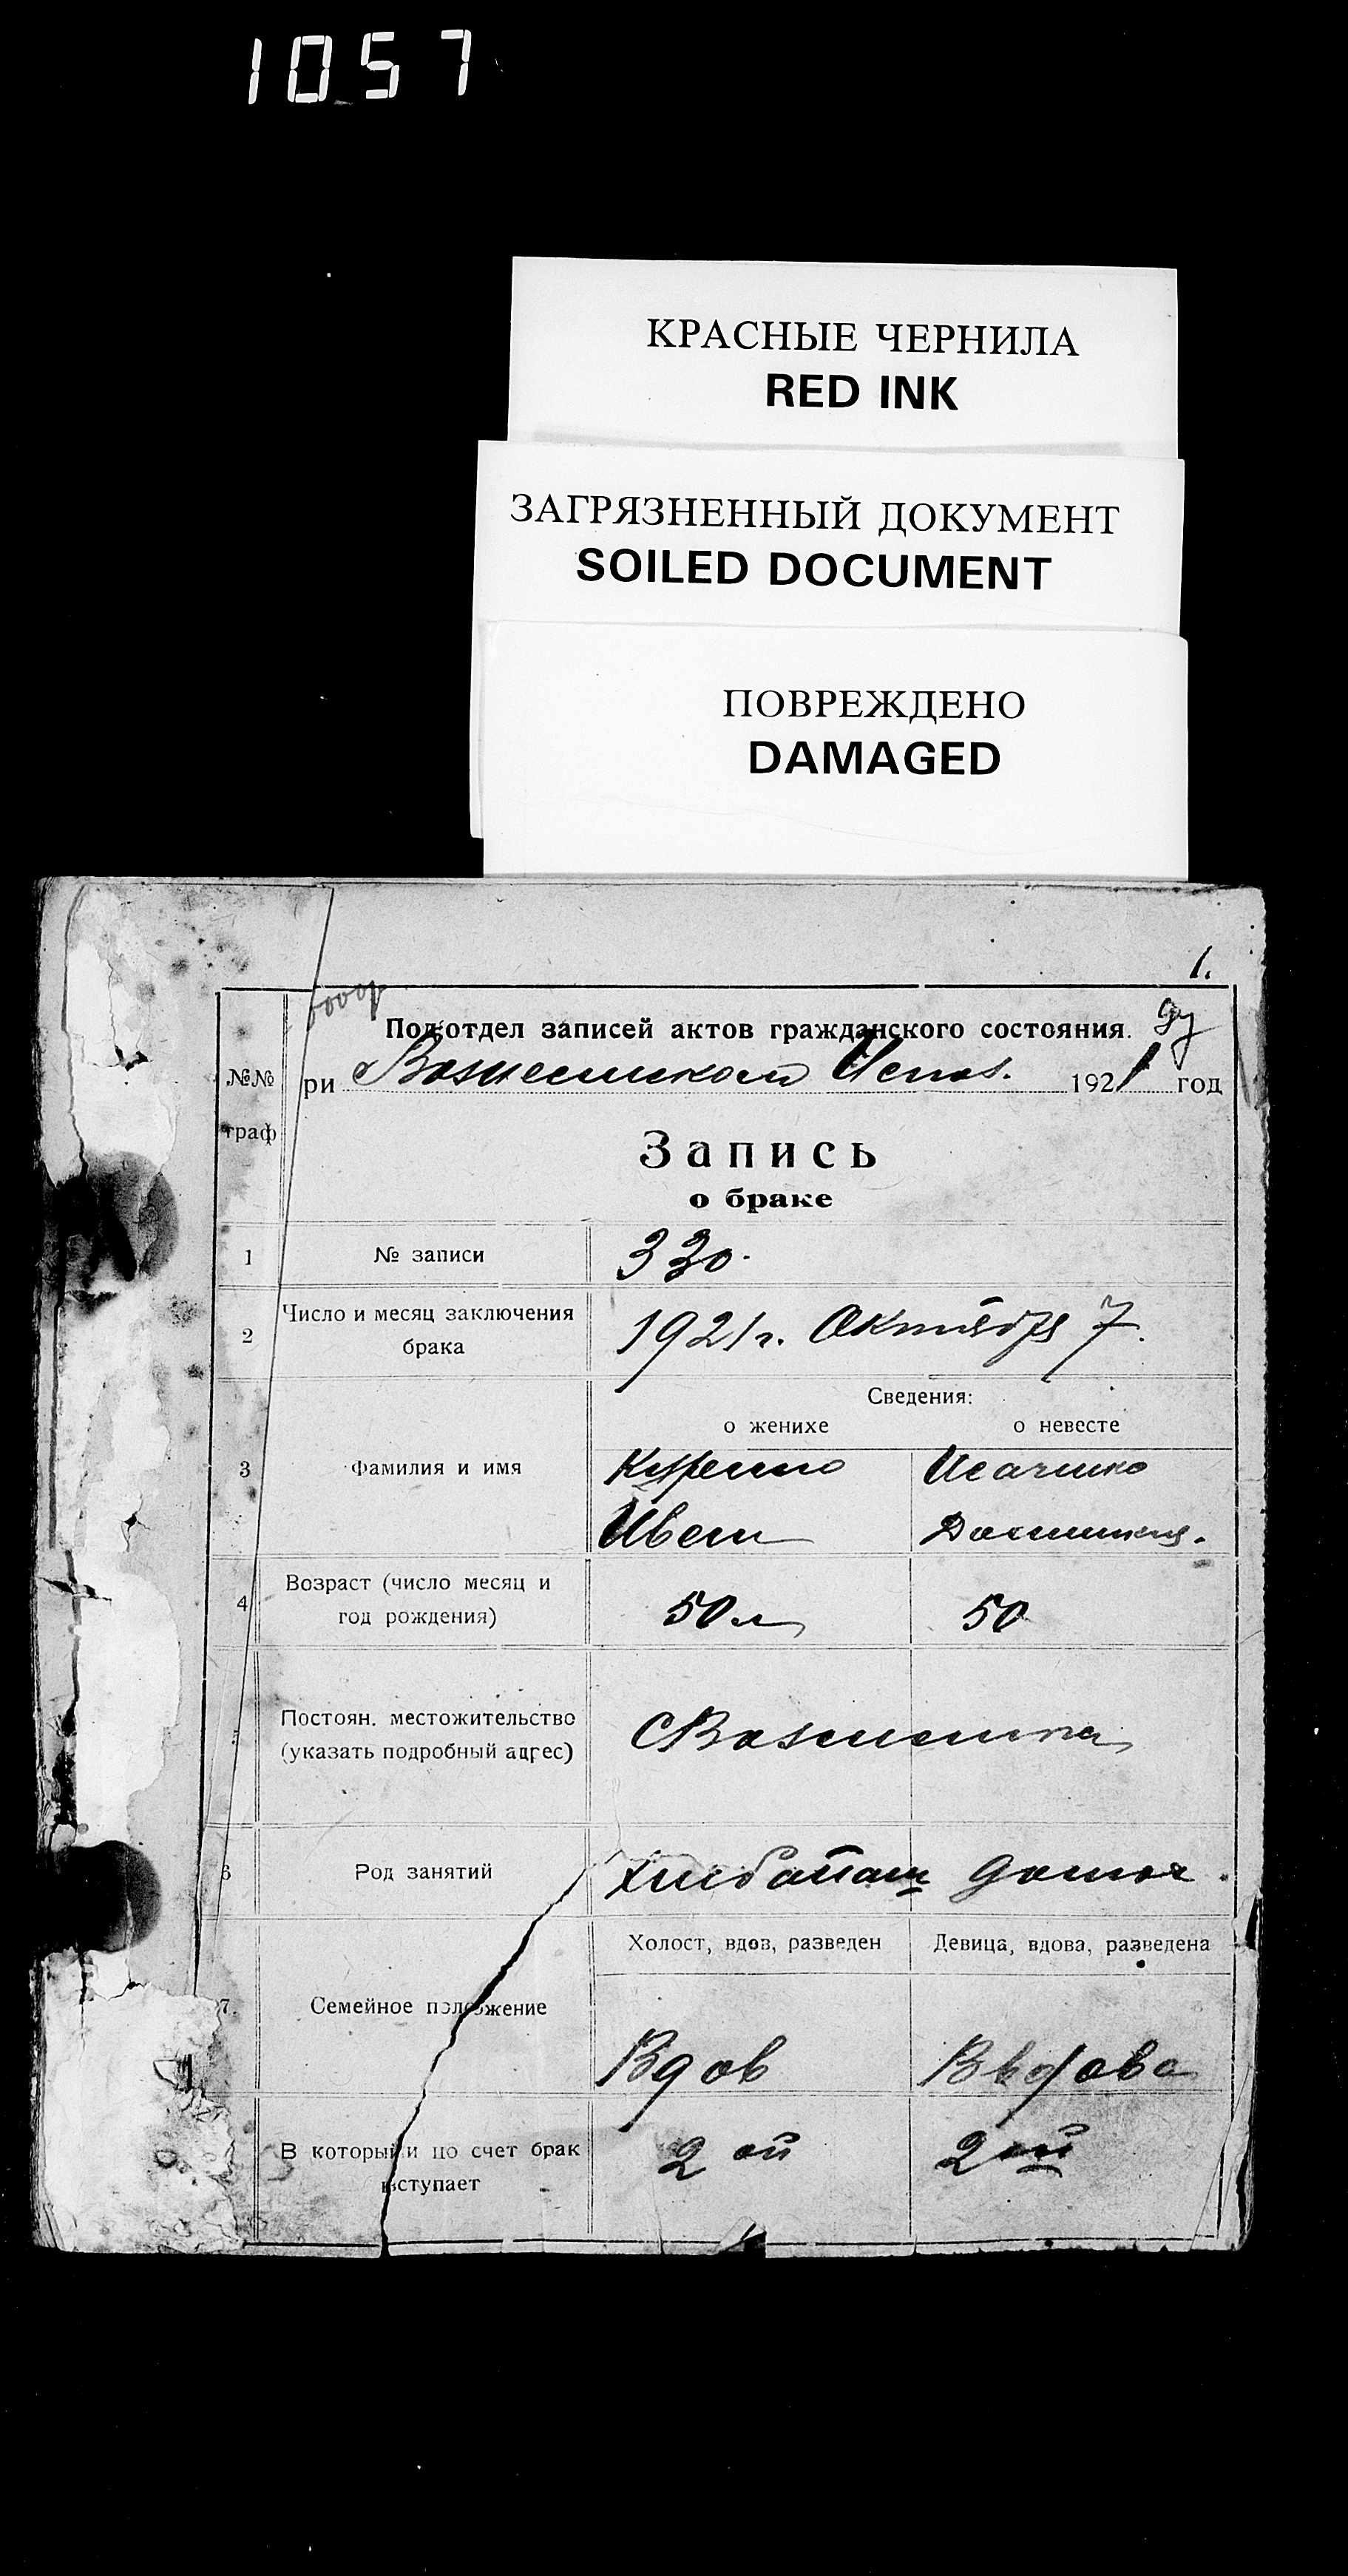 1057
КРАСНЫЕ ЧЕРНИЛА
RED INK
ЗАГРЯЗНЕННЫЙ ДОКУМЕНТ
SOILED DOCUMENT
ПОВРЕЖДЕНО
DAMAGED
1.
Подотдел записей актов гражданского состояния.
№№ граф
ри Вознесенском 1921 год
Запись
о браке
1 № записи 330.
2 Число и месяц заключения брака 1921 г. Октября 7.
Сведения:
о женихе о невесте
3 Фамилия и имя
4 Возраст (число месяц и год рождения) 50 л 50
Постоян. местожительство (указать подробный адрес)
6 Род занятий
Холост, вдов, разведен Девица, вдова, разведена
7. Семейное положение
Вдов
В который по счет брак вступает 2 ой 2 ой